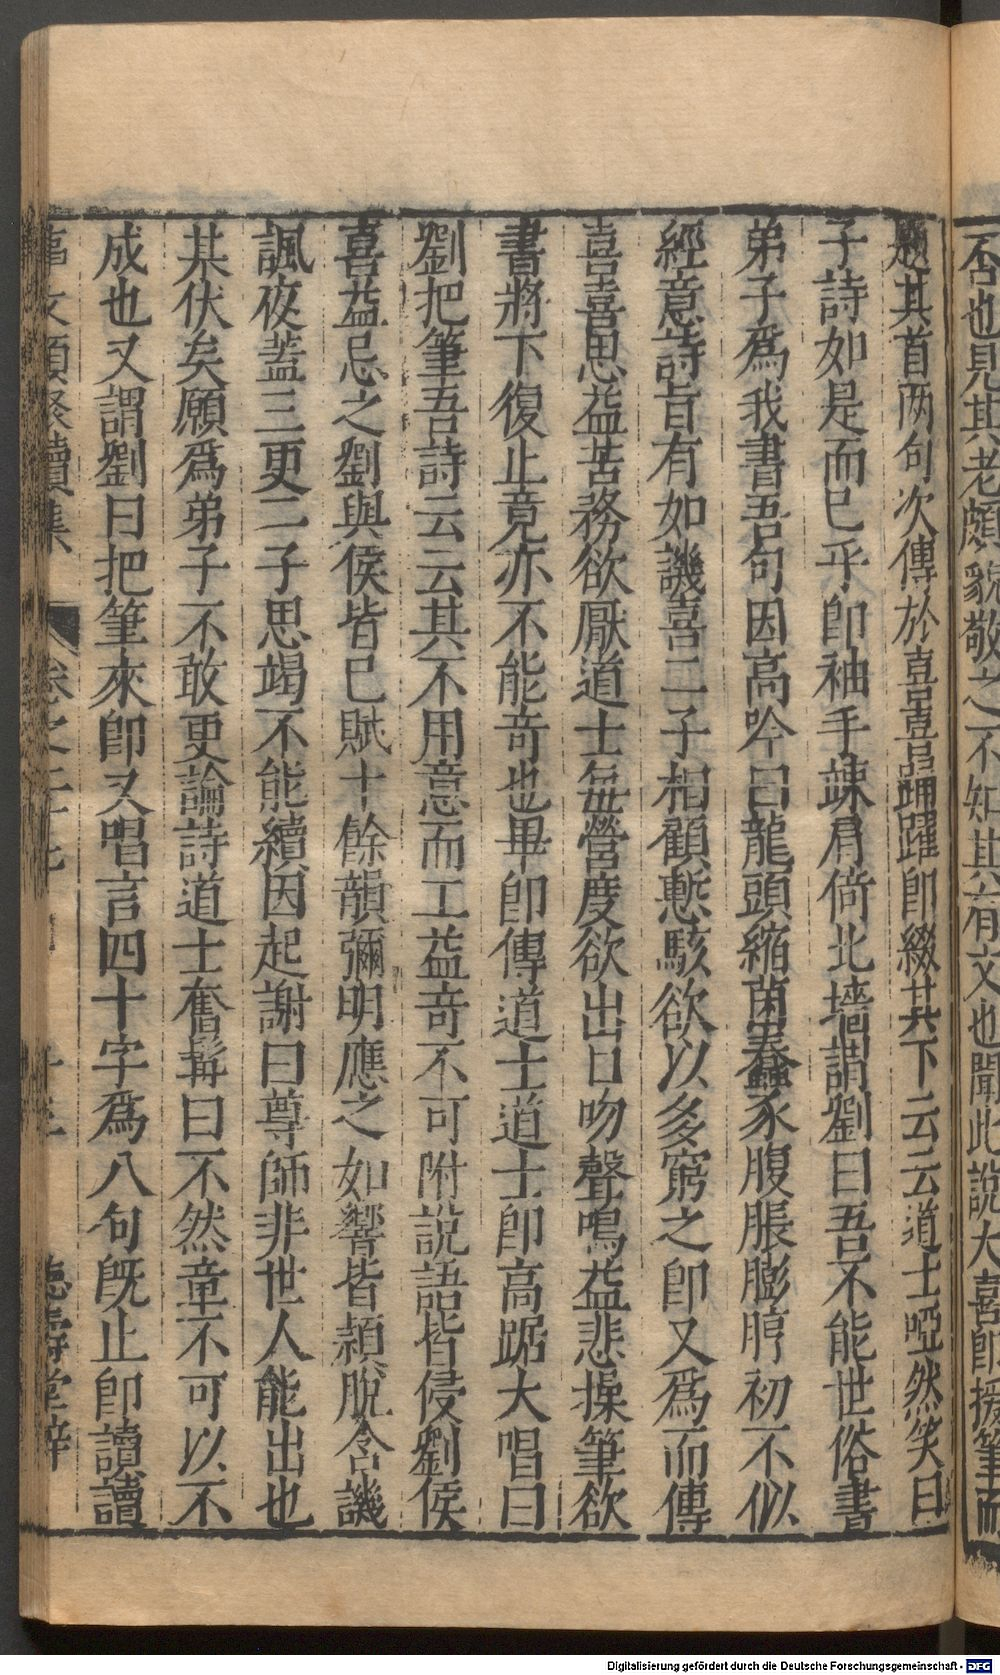 否也見其老頗貌敬之不知其有文也聞此說大喜即援筆而
題其首兩句次傳於喜喜踴躍即綴其下云云道士啞然笑曰
子詩如是而已乎即袖手竦肩倚北墻謂劉曰吾不能世俗書
弟子為我書吾句因高吟曰龍頭縮菌蠢豕腹脹膨脝初不似
經意詩旨有如譏喜二子相顧慙駭欲以多窮之即又為而傳
喜喜思益苦務欲厭道士每營度欲出口吻聲鳴益悲操筆欲
書將下復止竟亦不能奇也畢即傳道士道士即高踞大唱曰
劉把筆吾詩云云其不用意而工益奇不可附說語皆侵劉侯
喜益忌之劉與侯皆已賦十餘韻彌明應之如響皆頴脫含譏
諷夜蓋三更二子思竭不能續因起謝曰尊師非世人能出也
某伏矣願為弟子不敢更論詩道士奮髯曰不然章不可以不
成也又謂劉曰把筆來即又唱言四十字為八句既止即讀讀
事文類聚續集 卷之二十七 十三 德壽堂梓
Digitalisierung gefördert durch die Deutsche Forschungsgemeinschaft - DFG